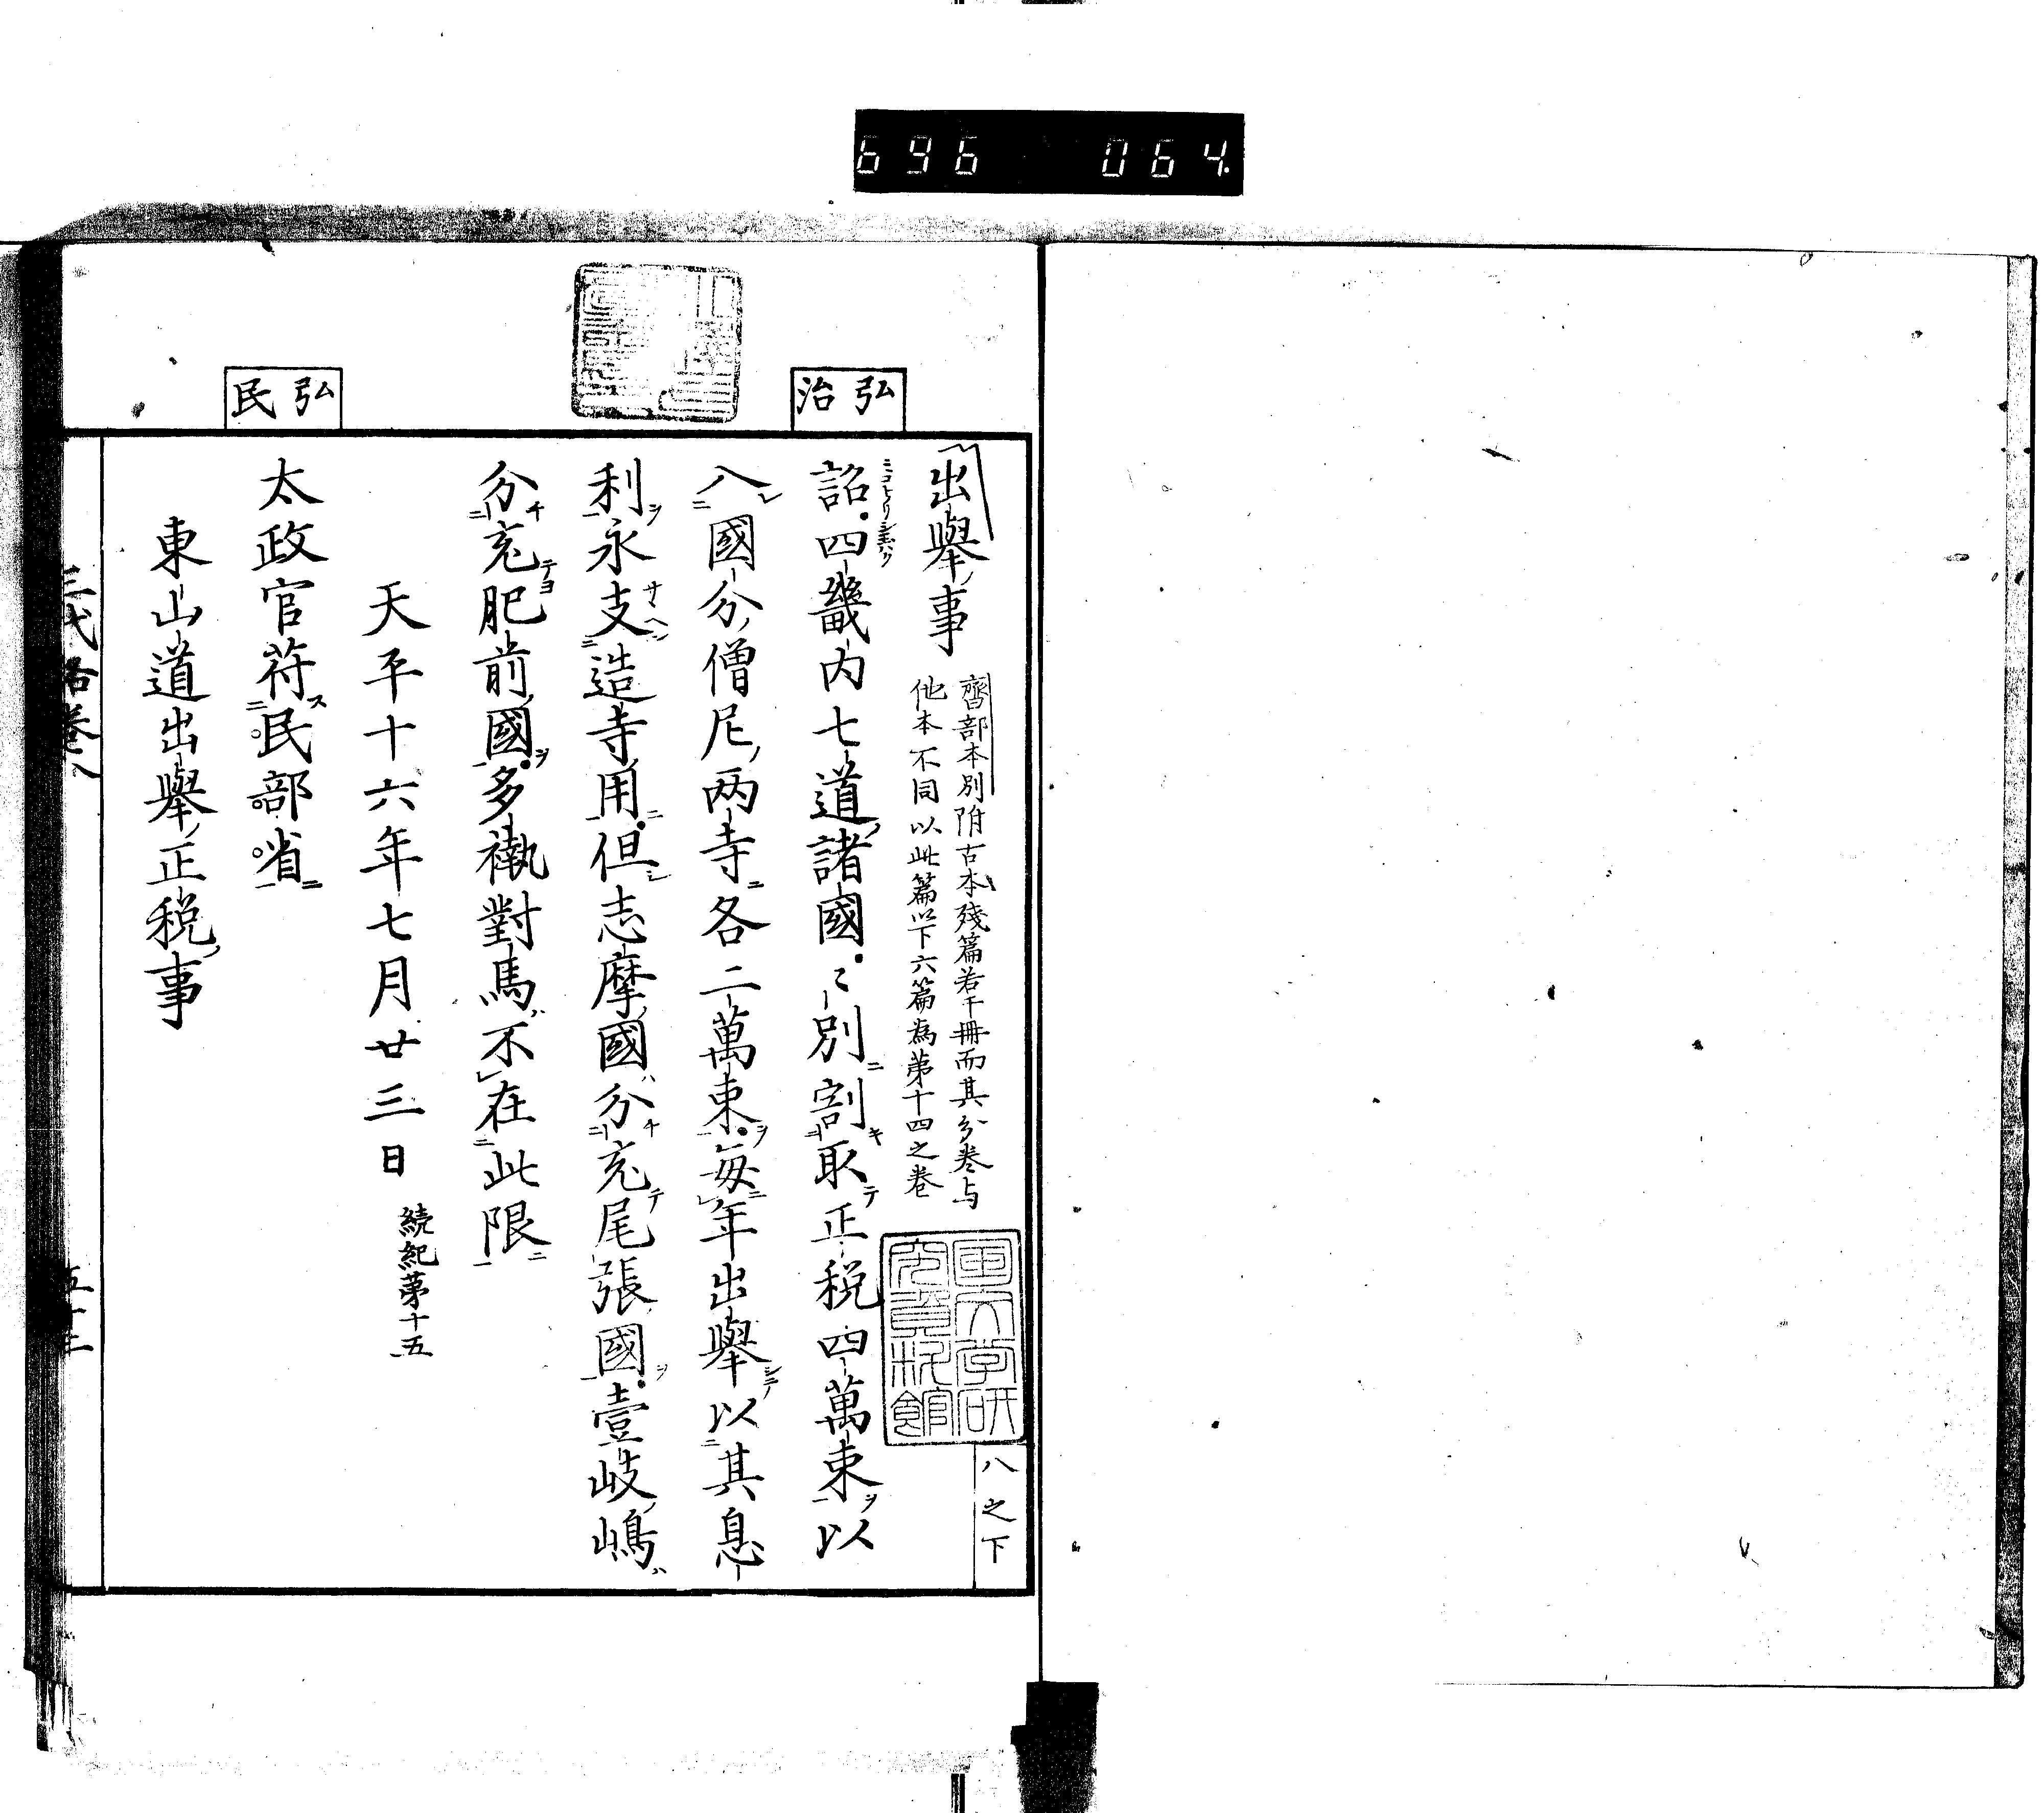 696 064.
弘治
出舉事
齊部本別附古本殘篇若干冊而其分卷与
他本不同以此篇以下六篇為第十四之卷
八之下
詔四畿内七道諸國〻別割取正税四萬束以
入國分僧尼両寺各二萬束毎年出舉以其息
利永支造寺用但志摩國分充尾張國壹岐嶋
分充肥前國多褹對馬不在此限
天平十六年七月廿三日
続紀第十五
弘民
太政官符民部省
東山道出舉正税事
三代格巻八